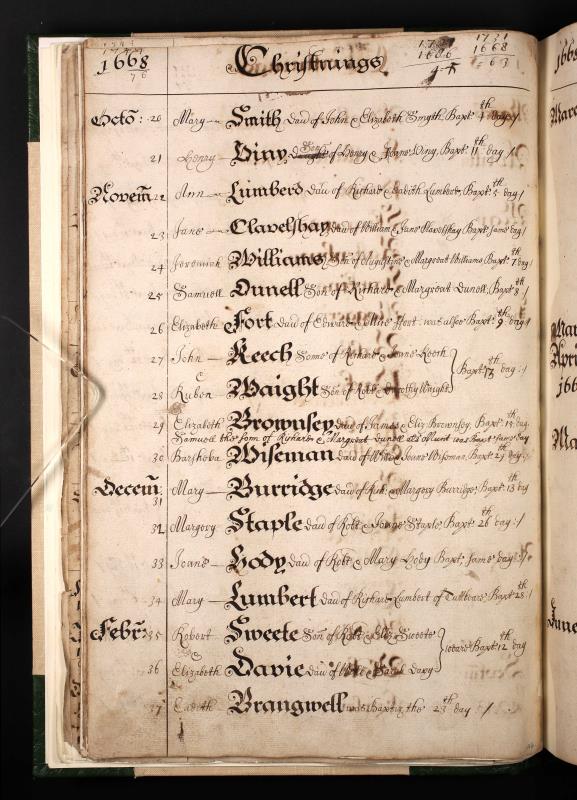 1668 Christnings 1731
76 1686 1668
63
Octo: 20 Mary Smith daw of John & Elizabeth Smyth Bapt 4th day /
21 Henry Viny Son of Henry & Joane Viny, Bapt 11 day /
Novem 22 Ann Lumberd daw of Richard & Edith Lumbert, Bapt 5 day /
23 Jane Clavelshay daw of William & Jane Clavelshay Bapt same day /
24 Jeremiah Williams Son of Augustine & Margreat Williams, Bapt 7th day /
25 Samuell Dunell Son of Richard & Margreat Dunell, Bapt 8th /
26 Elizabeth Fort daw of Edward & Fort was allso Bapt 9th day /
27 John Keech Sonne of Richard & Joane Keech
Bapt 13th day /
28 Ruben Waight Son of Robt & Dorothy Waight
29 Elizabeth Brownsey daw of James & Eliz Brownsey, Bapt 15th day
Samuell the sonn of Richard & Margreat Dunell was Bapt same day
30 Barshoba Wiseman daw of & Joane Wiseman, Bapt 29 day
Decem 31 Mary Burridge daw of Rich & Margery Burridge, Bapt 13th day
32 Margery Staple daw of Robt & Joane Staple, Bapt 26th day /
33 Joane Hody daw of Robt & Mary Hody Bapt same day /
34 Mary Lumbert daw of Richard Lumbert of Bapt 28th /
Febr 35 Robert Sweete Son of Robt & Eliz Sweete
weare Bapt 12th day
36 Elizabeth Davie daw of & Sarah Davy
37 Edith Brangwell was Baptiz the 23th day /